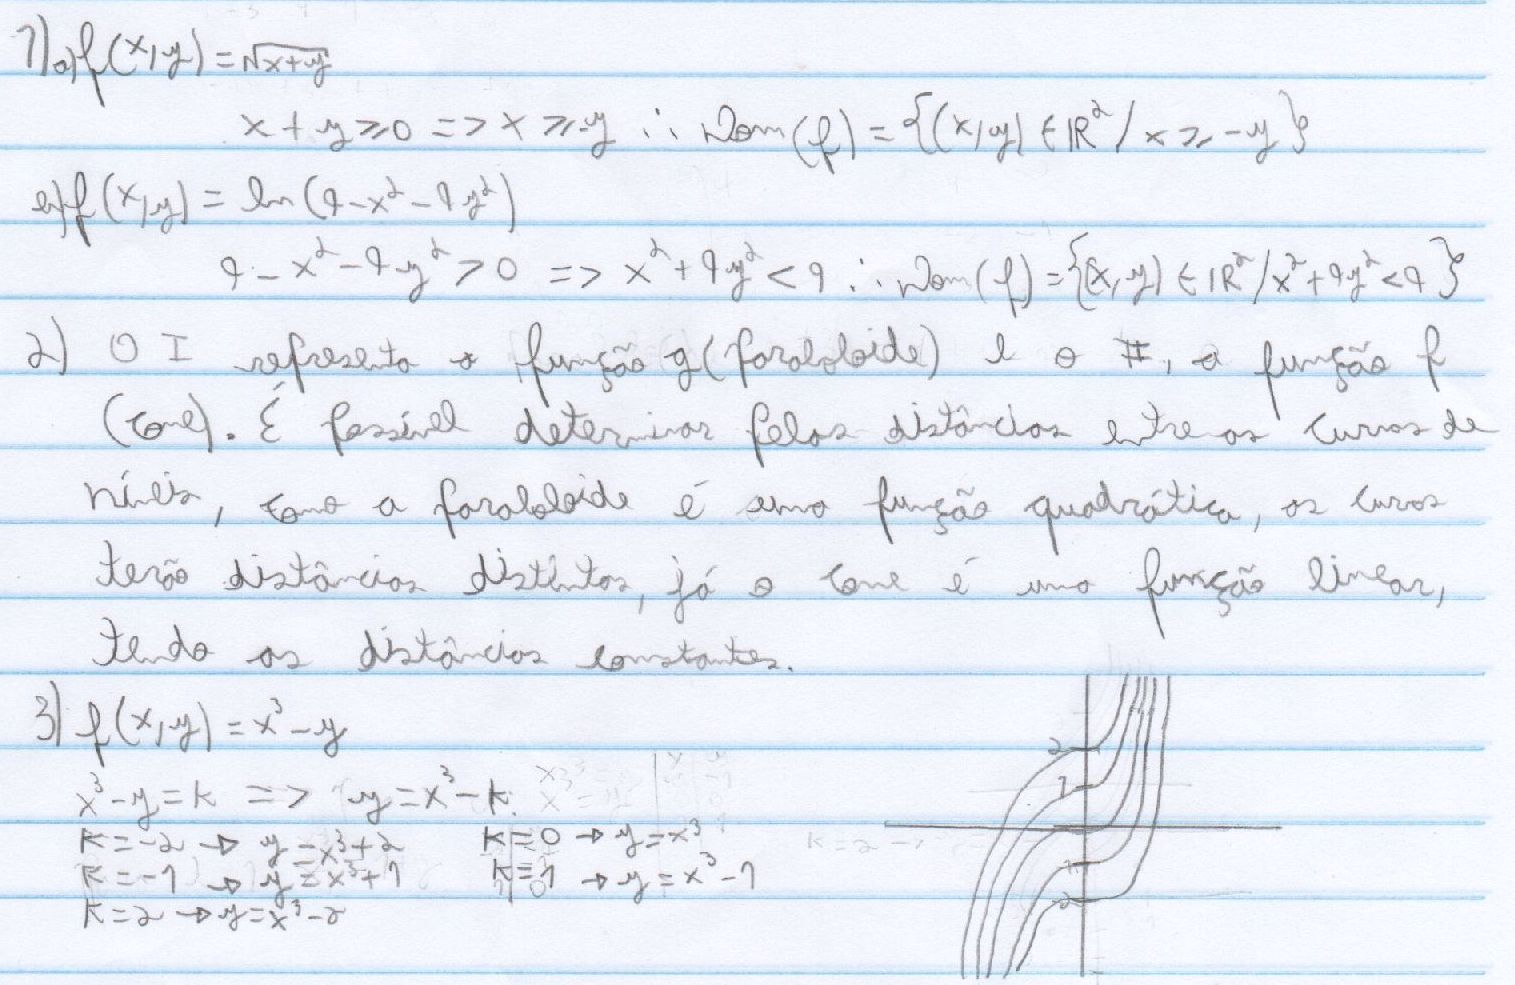 1) a) f(x,y) = √x+y
x + y ≥ 0 => x ≥ -y ∴ Dom(f) = {(x,y) ∈ IR² / x ≥ -y}
b) f(x,y) = ln(9-x²-9y²)
9-x²-9y² > 0 => x²+9y² < 9 ∴ Dom(f) = {(x,y) ∈ IR² / x²+9y² < 9}
2) O I representa a função g(paraboloide) e o II, a função f
(cone). É possível determinar pelas distâncias entre as curvas de
níveis, como a paraboloide é uma função quadrática, as curvas
terão distâncias distintas, já o cone é uma função linear,
tendo as distâncias constantes.
3) f(x,y) = x³-y
x³-y = k => y = x³-k.
k=-2 → y=x³+2 k=0 → y=x³
k=-1 → y=x³+1 k=1 → y=x³-1
k=2 → y=x³-2
2
1
-1
-2